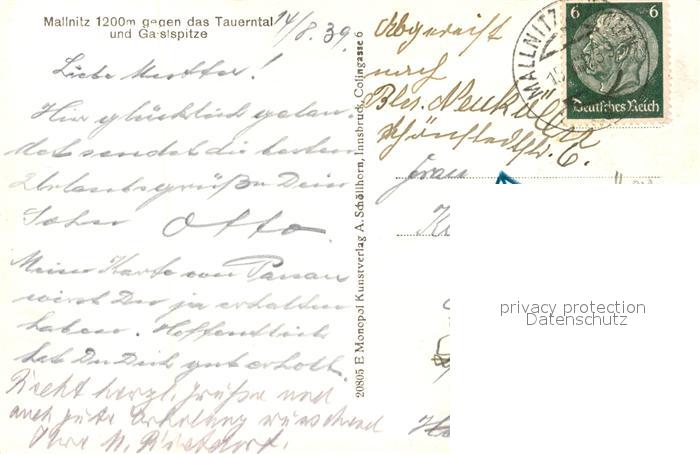 Mallnitz 1200m gegen das Tauerntal
und Gaislspitze
14/8.39.
Liebe Mutter!
Hier glücklich gelan-
det sendet die besten
Urlaubsgrüße Dein
Sohn Otto.
Meine Karte von Passau
wirst Du ja erhalten
haben. Hoffentlich
hat Du Dich gut erholt.
Recht herzl. Grüße und
auch gute Erholung wünschend
Ihre M.
20805 E Monopol Kunstverlag A. Schöllhorn, Innsbruck, Colingasse 6
Abgereist
nach
Bln. Neukölln
Schönstedtstr. 6.
MALLNITZ
6 6
Deutsches Reich
Frau
privacy protection
Datenschutz